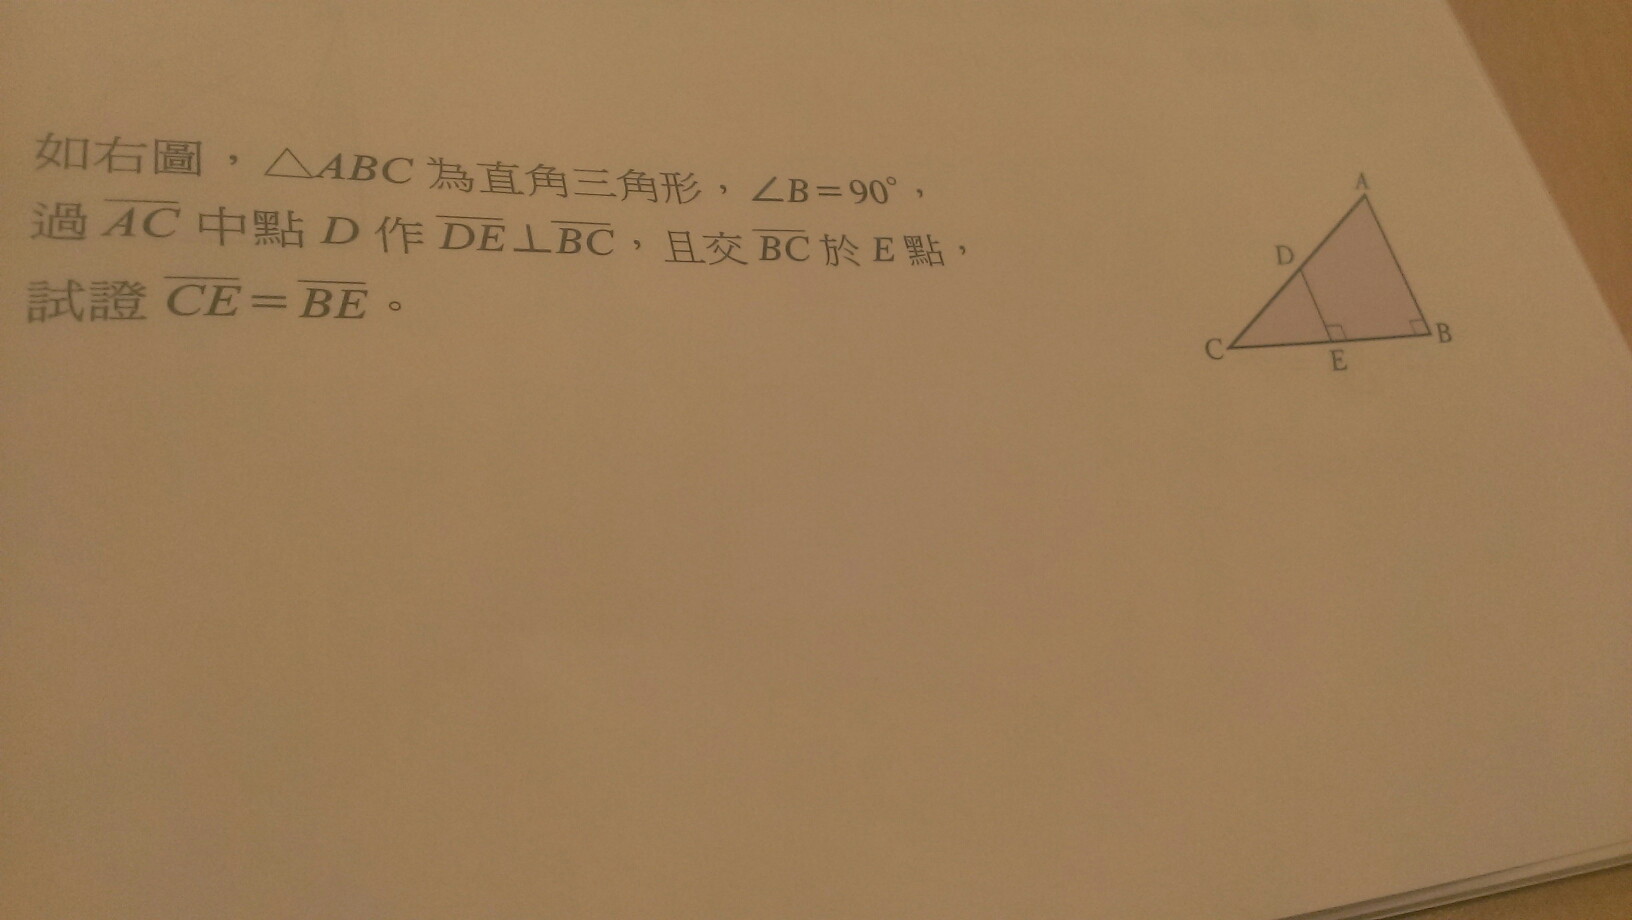 如右圖，△ABC 為直角三角形，∠B=90°，
過 AC 中點 D 作 DE⊥BC，且交 BC 於 E 點，
試證 CE=BE。
A
D
C
E
B